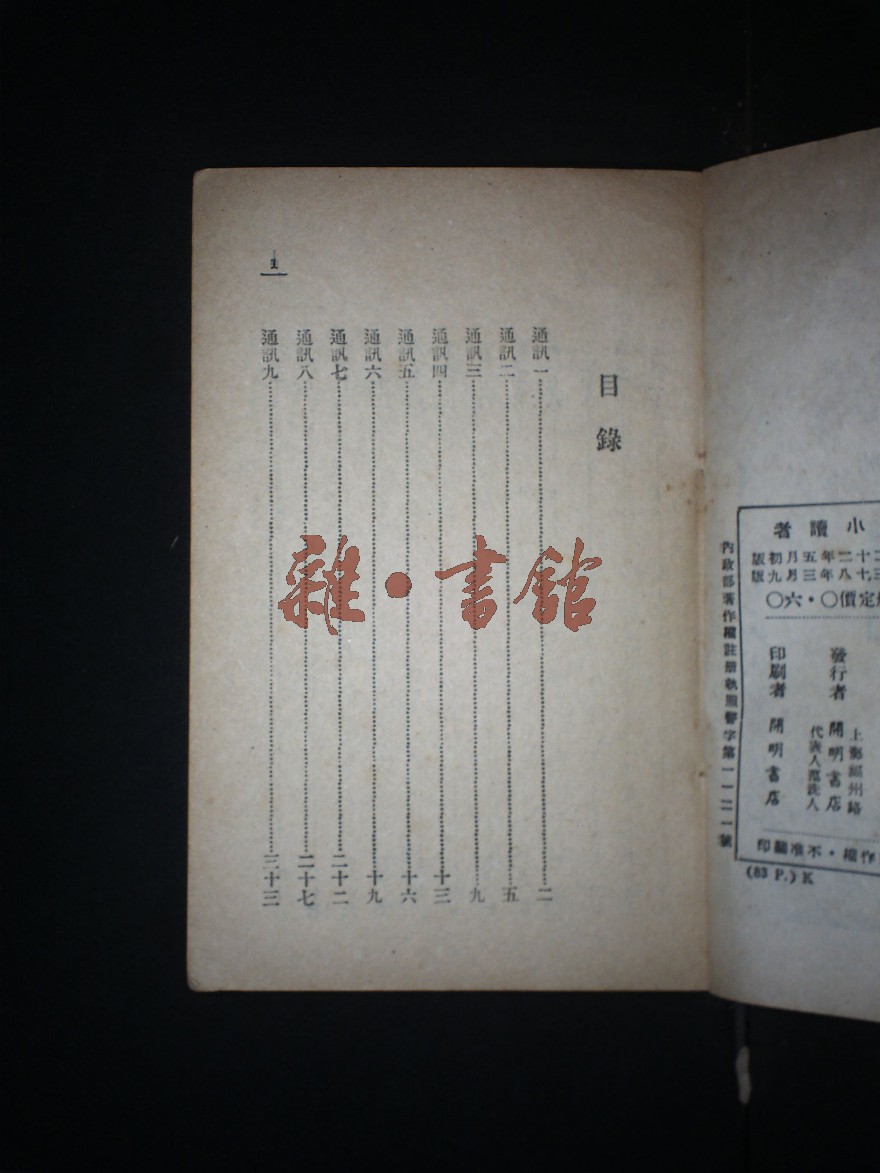 小讀者
二十二年五月初版
三十八年三月九版
定價○・六○
上海福州路
發行者 開明書店
代表人范洗人
印刷者 開明書店
作權・不准翻印
(83 P.) K
內政部著作權註册執照警字第一一二一號
目錄
通訊一……二
通訊二……五
通訊三……九
通訊四……十三
通訊五……十六
通訊六……十九
通訊七……二十二
通訊八……二十七
通訊九……三十三
1
雜・書館